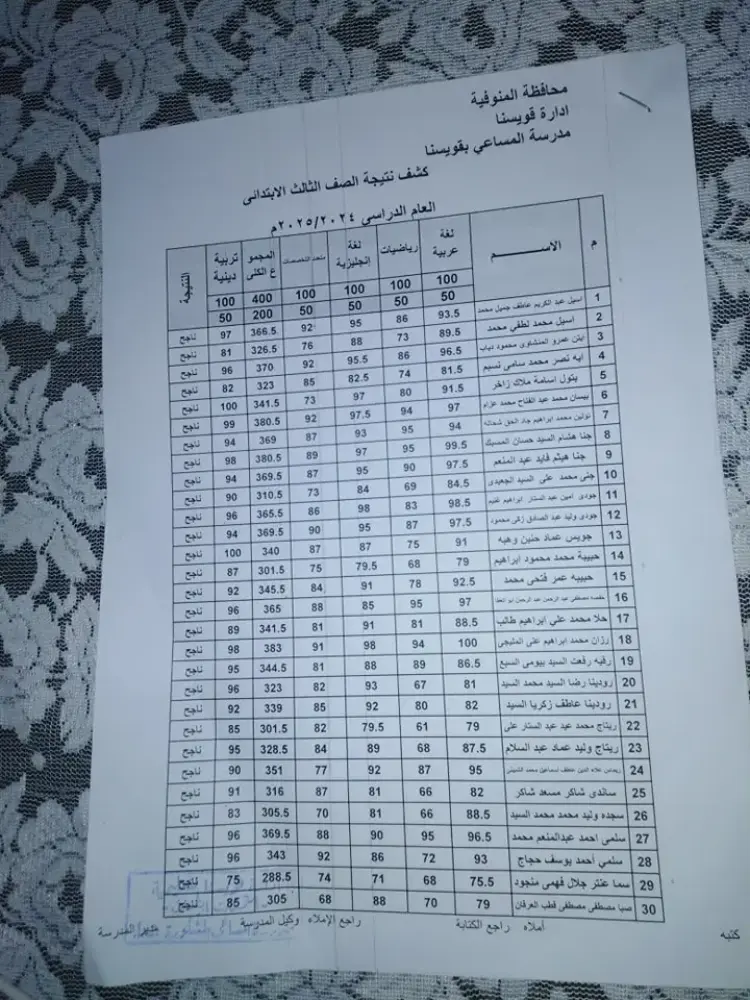 محافظة المنوفية
ادارة قويسنا
مدرسة المساعي بقويسنا
كشف نتيجة الصف الثالث الابتدائى
العام الدراسي ٢٠٢٥/٢٠٢٤م
م الاســـــم لغة عربية رياضيات لغة إنجليزية متعدد التخصصات المجموع الكلى تربية دينية النتيجة
100 100 100 100 400 100
50 50 50 50 200 50
1 اسيل عبد الكريم عاطف جميل محمد 93.5 86 95 92 366.5 97 ناجح
2 اسيل محمد لطفي محمد 89.5 73 88 76 326.5 81 ناجح
3 ايتن عمرو المنشاوى محمود دياب 96.5 86 95.5 92 370 96 ناجح
4 ايه نصر محمد سامى نسيم 81.5 74 82.5 85 323 82 ناجح
5 بتول اسامة ملاك زاخر 91.5 80 97 73 341.5 100 ناجح
6 بيسان محمد عبد الفتاح محمد عزام 97 94 97.5 92 380.5 99 ناجح
7 محمد ابراهيم جاد الحق شحاته 94 95 93 87 369 94 ناجح
8 جنا هشام السيد حسان 99.5 95 97 89 380.5 98 ناجح
9 جنا هيثم فايد عبد المنعم 97.5 90 95 87 369.5 94 ناجح
10 جنى محمد على السيد الجعيدى 84.5 69 84 73 310.5 90 ناجح
11 جودى امين عبد الستار ابراهيم غنيم 98.5 83 98 86 365.5 96 ناجح
12 جودى وليد عبد الصادق زكى محمود 97.5 87 95 90 369.5 94 ناجح
13 جويس عماد حنين وهبه 91 75 87 87 340 100 ناجح
14 حبيبة محمد محمود ابراهيم 79 68 79.5 75 301.5 87 ناجح
15 حبيبه عمر فتحى محمد 92.5 78 91 84 345.5 92 ناجح
16 حفصه مصطفى عبد الرحمن عبد الرحمن ابو العطا 97 95 85 88 365 96 ناجح
17 حلا محمد علي ابراهيم طالب 88.5 81 91 81 341.5 89 ناجح
18 رزان محمد ابراهيم على المليجى 100 94 98 91 383 98 ناجح
19 رقيه رفعت السيد بيومى السبع 86.5 89 88 81 344.5 95 ناجح
20 رودينا رضا السيد محمد السيد 81 67 93 82 323 96 ناجح
21 رودينا عاطف زكريا السيد 82 80 92 85 339 92 ناجح
22 ريتاج محمد عيد عبد الستار على 79 61 79.5 82 301.5 85 ناجح
23 ريتاج وليد عماد عبد السلام 87.5 68 89 84 328.5 95 ناجح
24 ريماس علاء الدين عاطف اسماعيل محمد 95 87 92 77 351 90 ناجح
25 ساندى شاكر مسعد شاكر 82 66 81 87 316 91 ناجح
26 سجده وليد محمد محمد السيد 88.5 66 81 70 305.5 83 ناجح
27 سلمى احمد عبدالمنعم محمد 96.5 95 90 88 369.5 96 ناجح
28 سلمي أحمد يوسف حجاج 93 72 86 92 343 96 ناجح
29 سما عنتر جلال فهمى منجود 75.5 68 71 74 288.5 75 ناجح
30 صبا مصطفى مصطفى قطب العرفان 79 70 88 68 305 85 ناجح
كتبه أملاه راجع الكتابة راجع الإملاء وكيل المدرسة مدير المدرسة